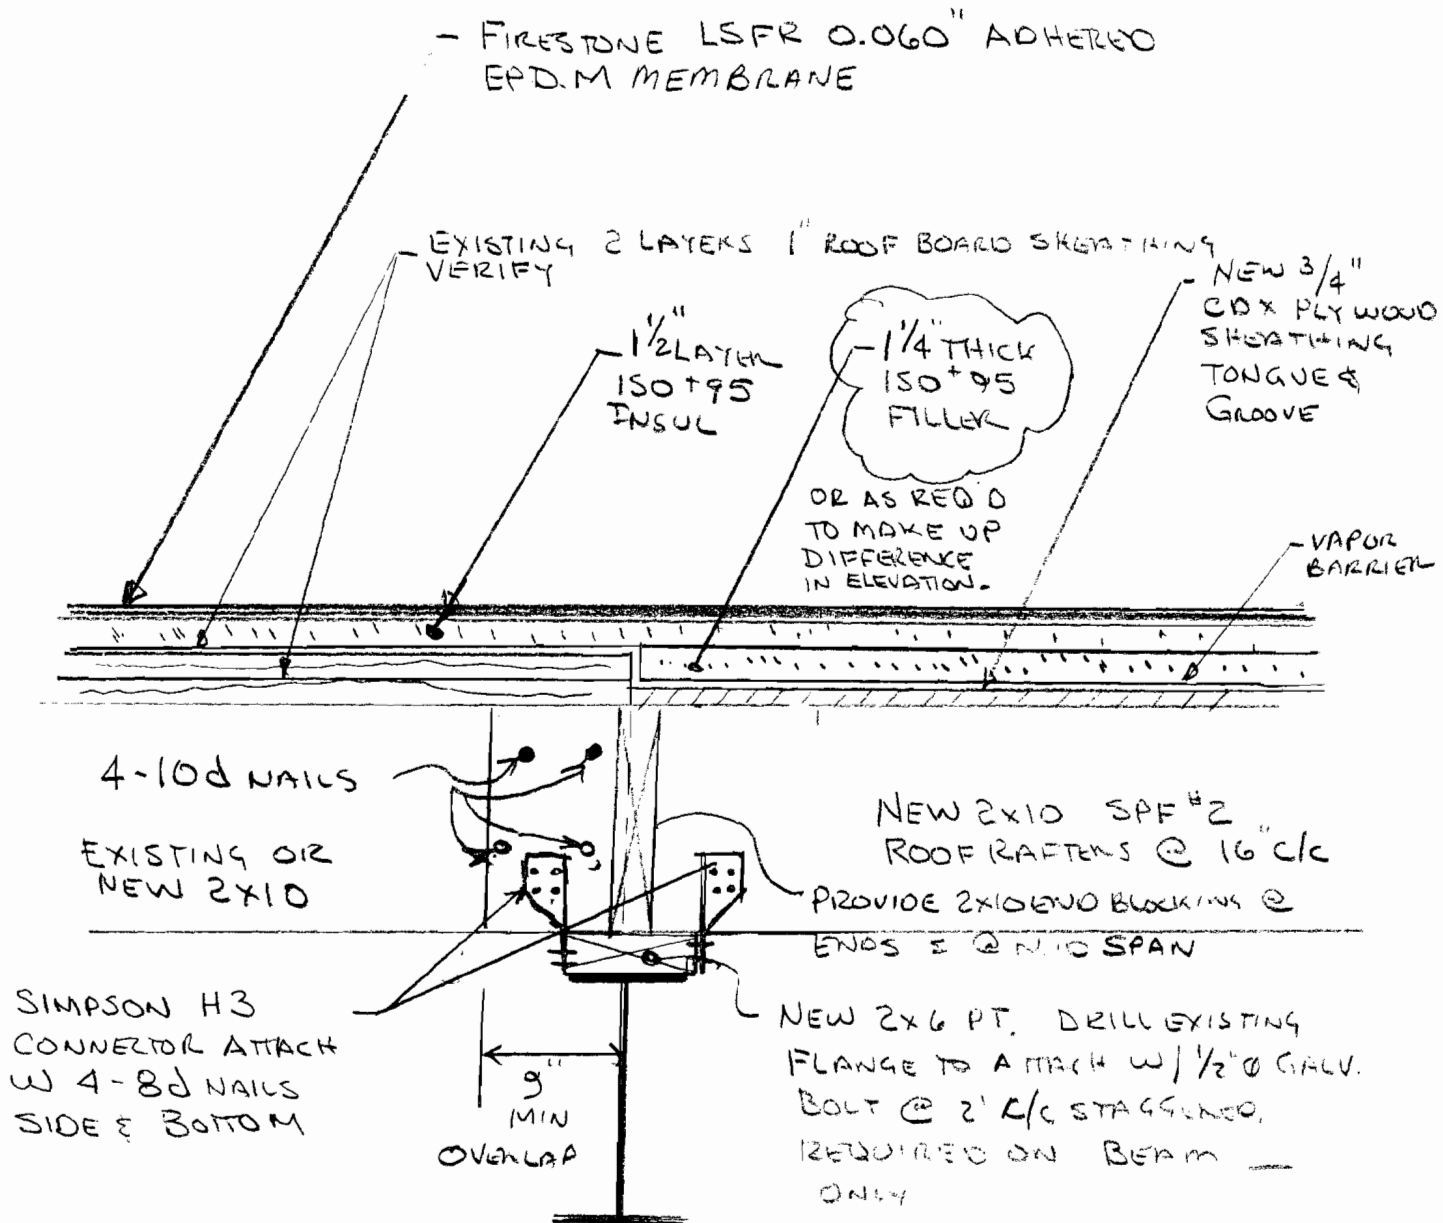 - FIRESTONE LSFR 0.060" ADHERED
EPD.M MEMBRANE
EXISTING 2 LAYERS 1" ROOF BOARD SHEATHING
VERIFY
- NEW 3/4"
CDX PLYWOOD
SHEATHING
TONGUE &
GROOVE
1 1/2" LAYER
ISO+95
INSUL
- 1 1/4" THICK
ISO+95
FILLER
OR AS REQ'D
TO MAKE UP
DIFFERENCE
IN ELEVATION.
- VAPOR
BARRIER
4-10d NAILS
EXISTING OR
NEW 2x10
NEW 2x10 SPF #2
ROOF RAFTERS @ 16" C/C
PROVIDE 2x10 END BLOCKING @
ENDS & @ MID SPAN
SIMPSON H3
CONNECTOR ATTACH
W 4-8d NAILS
SIDE & BOTTOM
9"
MIN
OVERLAP
NEW 2x6 PT. DRILL EXISTING
FLANGE TO ATTACH W/ 1/2" Ø GALV.
BOLT @ 2' C/C STAGGERED.
REQUIRED ON BEAM
ONLY